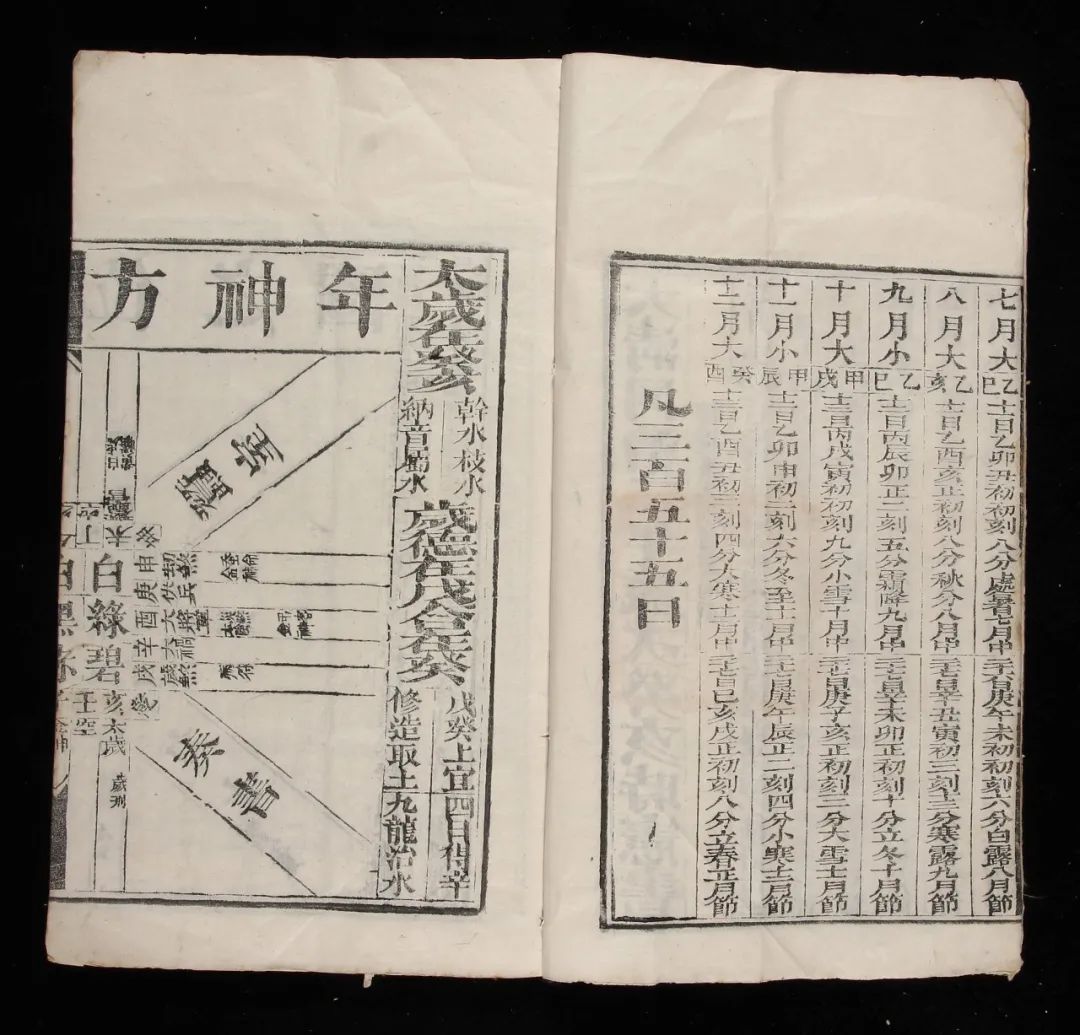 七月大 乙巳 十一日乙卯丑初初刻八分處暑七月中 二十六日庚午未初初刻六分白露八月節
八月大 乙亥 十一日乙酉亥正初刻八分秋分八月中 二十七日辛丑寅初三刻十三分寒露九月節
九月小 乙巳 十二日丙辰卯正二刻五分霜降九月中 二十七日辛未卯正初刻十分立冬十月節
十月大 甲戌 十三日丙戌寅初初刻九分小雪十月中 二十七日庚子亥正初刻三分大雪十一月節
十一月小 甲辰 十二日乙卯申初二刻六分冬至十一月中 二十七日庚午辰正二刻四分小寒十二月節
十二月大 癸酉 十三日乙酉丑初三刻四分大寒十二月中 二十七日己亥戌正初刻八分立春正月節
凡三百五十五日
太歲在癸亥
幹水枝水
納音屬水
歲德在戊合在癸
戊癸上宜
修造取土
四日得辛
九龍治水
年神方
蠶室
奏書
白綠碧
丁未
庚申
辛酉
戌
亥太歲
壬空
歲刑